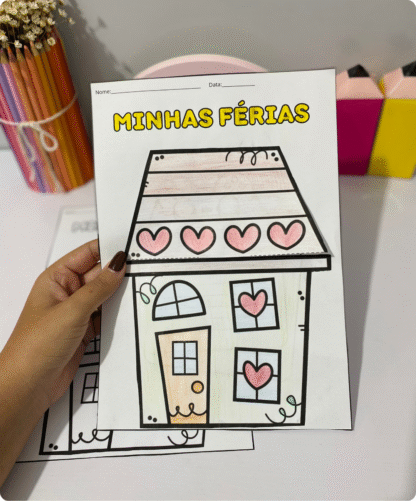 Nome:____________________ Data:__________
MINHAS FÉRIAS